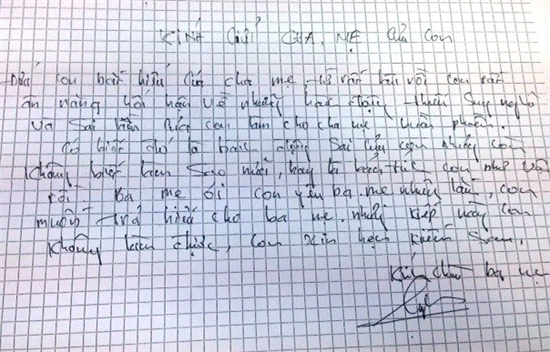 KÍNH GỬI CHA, MẸ CỦA CON
Đứa con bất hiếu của cha mẹ con rất
ăn năng hối hận về những hành động thiếu suy nghĩ
và sai lầm của con làm cho cha mẹ buồn phiền.
Có biết đó là hành động sai lầm con nhưng con
không biết làm sao nữa, hay là bởi tức con như vậy
rồi ba mẹ ơi con yêu ba mẹ nhiều lắm, con
muốn trả hiếu cho ba mẹ. nhưng kiếp này con
không làm được, con xin hẹn kiếp sau.
Kính chào ba mẹ